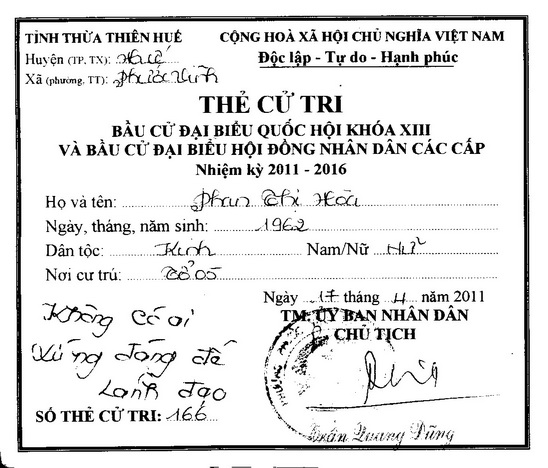 TỈNH THỪA THIÊN HUẾ
CỘNG HOÀ XÃ HỘI CHỦ NGHĨA VIỆT NAM
Huyện (TP, TX): Huế
Độc lập - Tự do - Hạnh phúc
Xã (phường, TT): Phước Vĩnh
THẺ CỬ TRI
BẦU CỬ ĐẠI BIỂU QUỐC HỘI KHÓA XIII
VÀ BẦU CỬ ĐẠI BIỂU HỘI ĐỒNG NHÂN DÂN CÁC CẤP
Nhiệm kỳ 2011 - 2016
Họ và tên: Phan Thị Hòa
Ngày, tháng, năm sinh: 1962
Dân tộc: Kinh Nam/Nữ Nữ
Nơi cư trú: Tổ 05
Ngày 17 tháng 4 năm 2011
TM. ỦY BAN NHÂN DÂN
CHỦ TỊCH
Không có ai
Xứng đáng để
Lãnh đạo
SỐ THẺ CỬ TRI: 166
Trần Quang Dũng